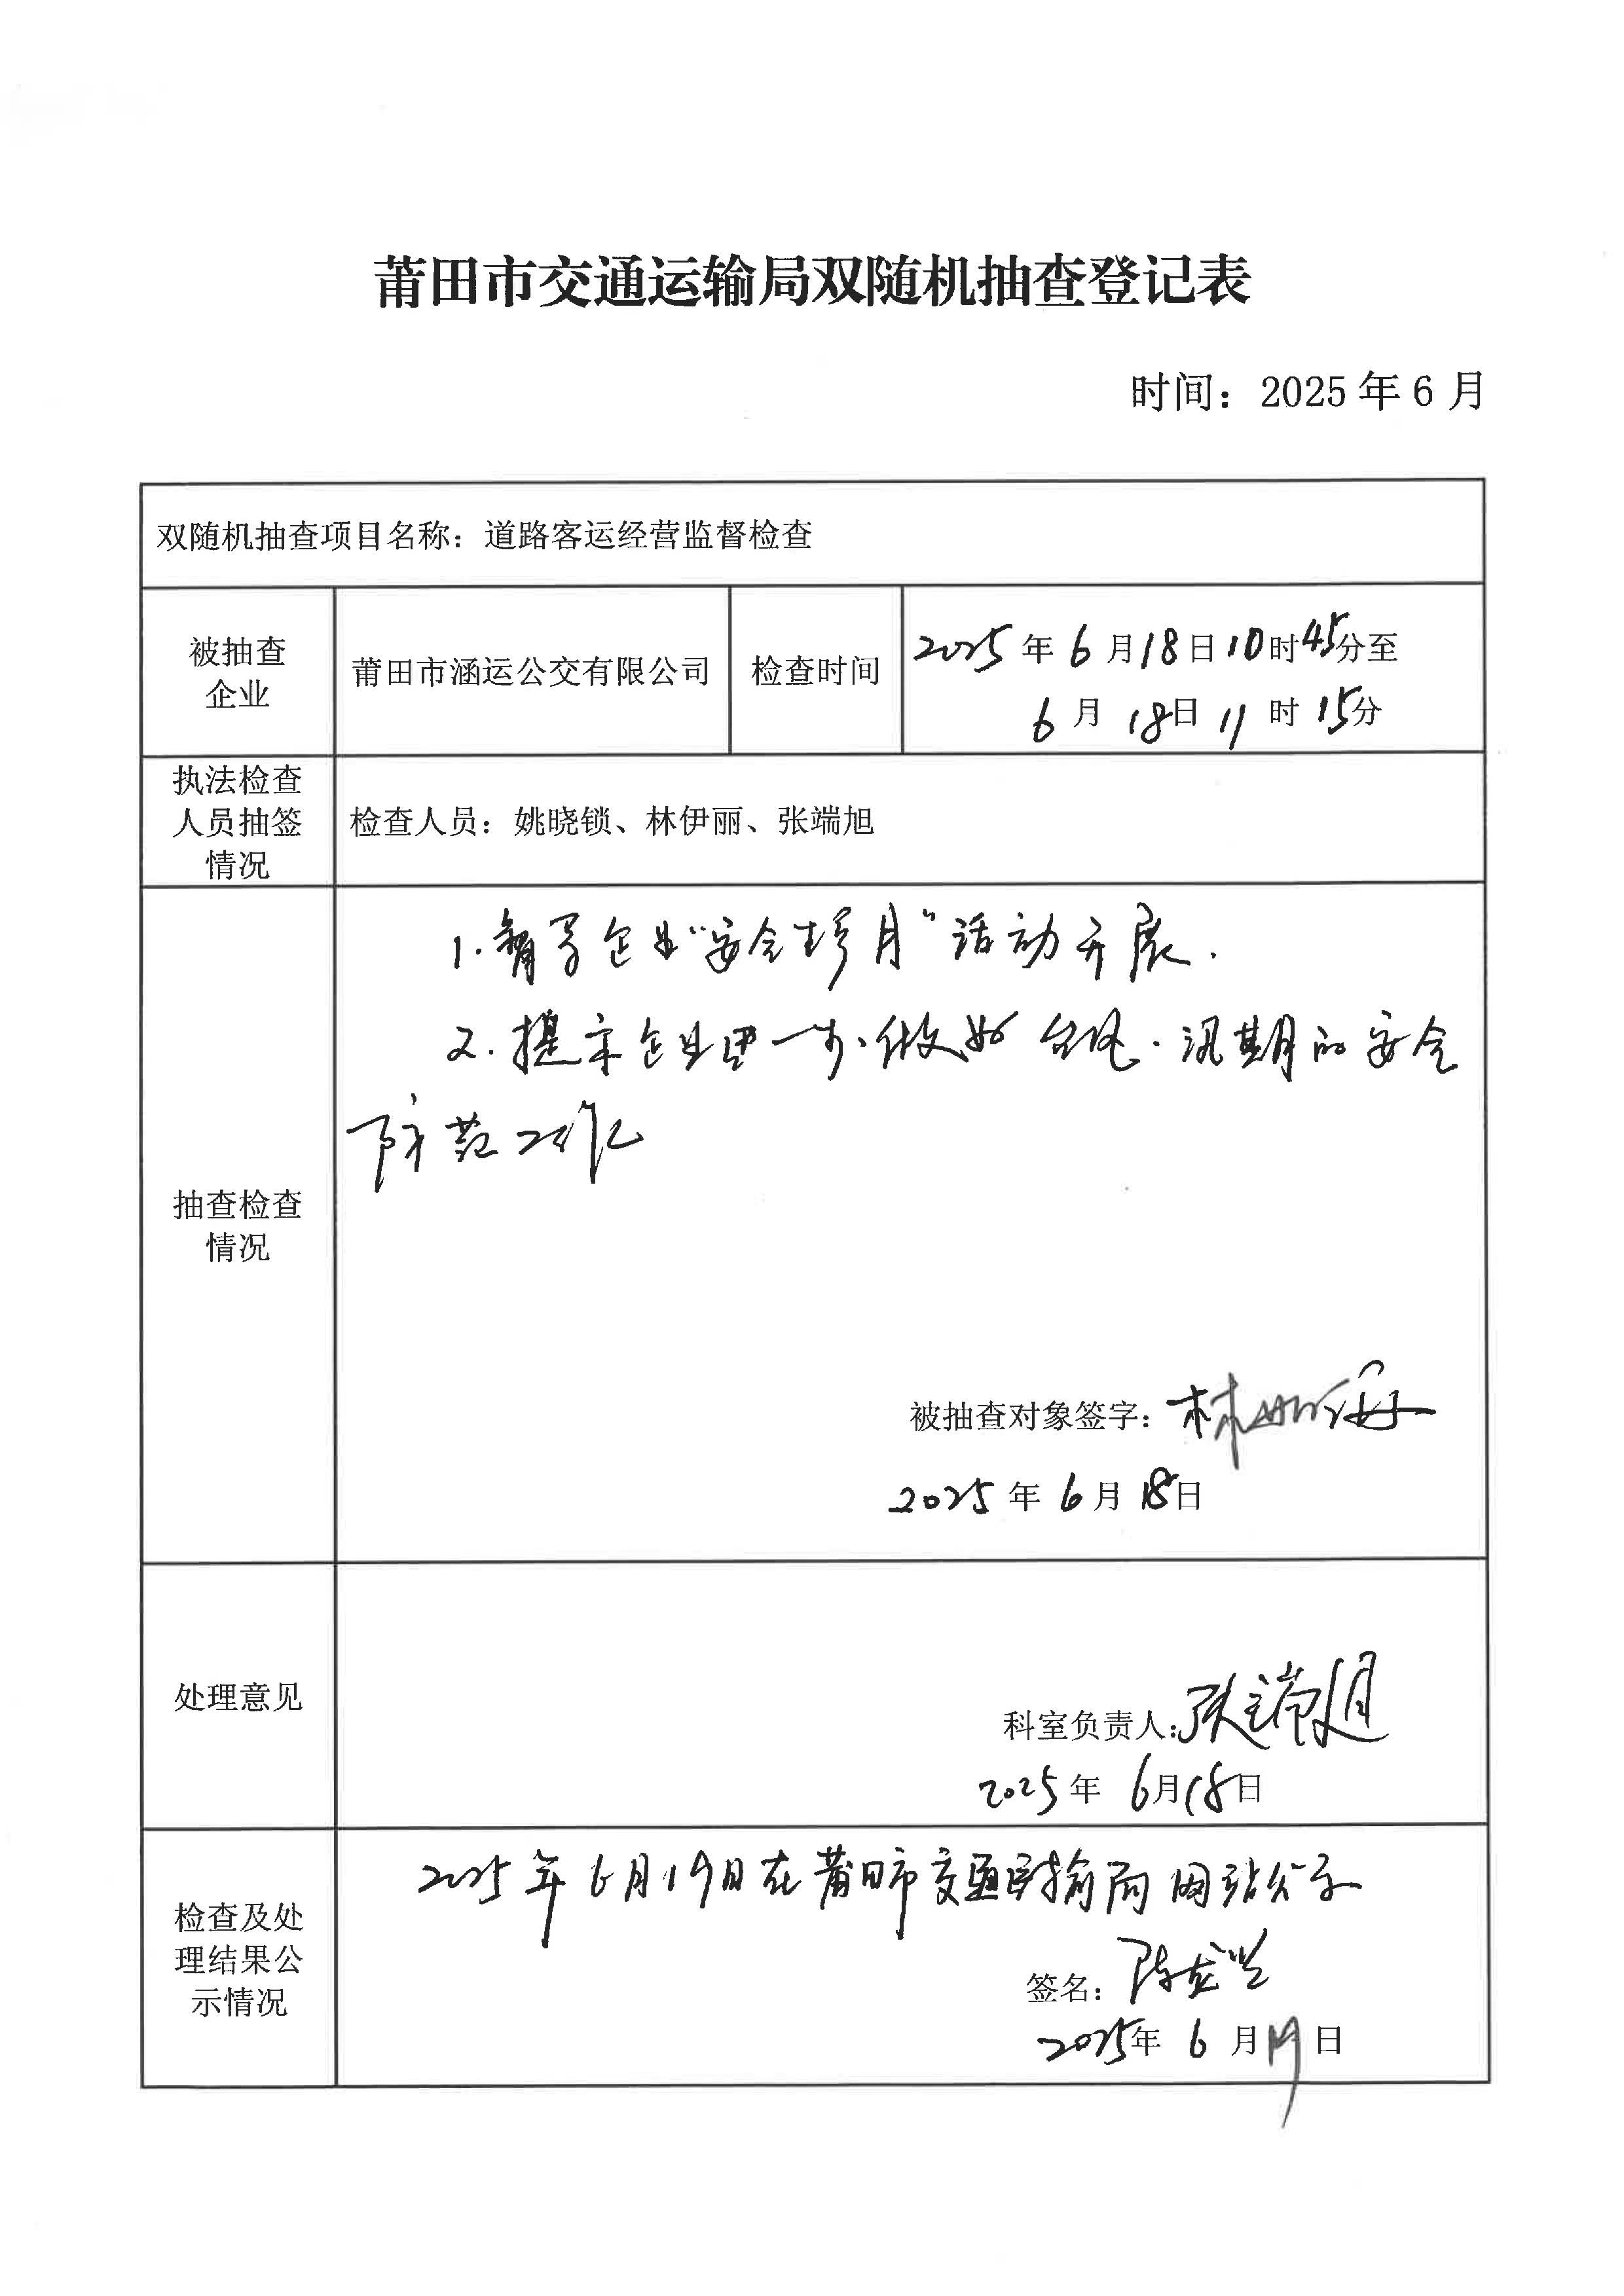 莆田市交通运输局双随机抽查登记表
时间：2025年6月
双随机抽查项目名称：道路客运经营监督检查
被抽查
企业
莆田市涵运公交有限公司
检查时间
2025年6月18日10时45分至
6月18日11时15分
执法检查
人员抽签
情况
检查人员：姚晓锁、林伊丽、张端旭
抽查检查
情况
1.督导企业“安全生产月”活动开展.
2.提示企业进一步做好台风.汛期的安全
防范工作
被抽查对象签字：林
2025年6月18日
处理意见
科室负责人：张端旭
2025年6月18日
检查及处
理结果公
示情况
2025年6月19日在莆田市交通运输局网站公示
签名：陈
2025年6月19日